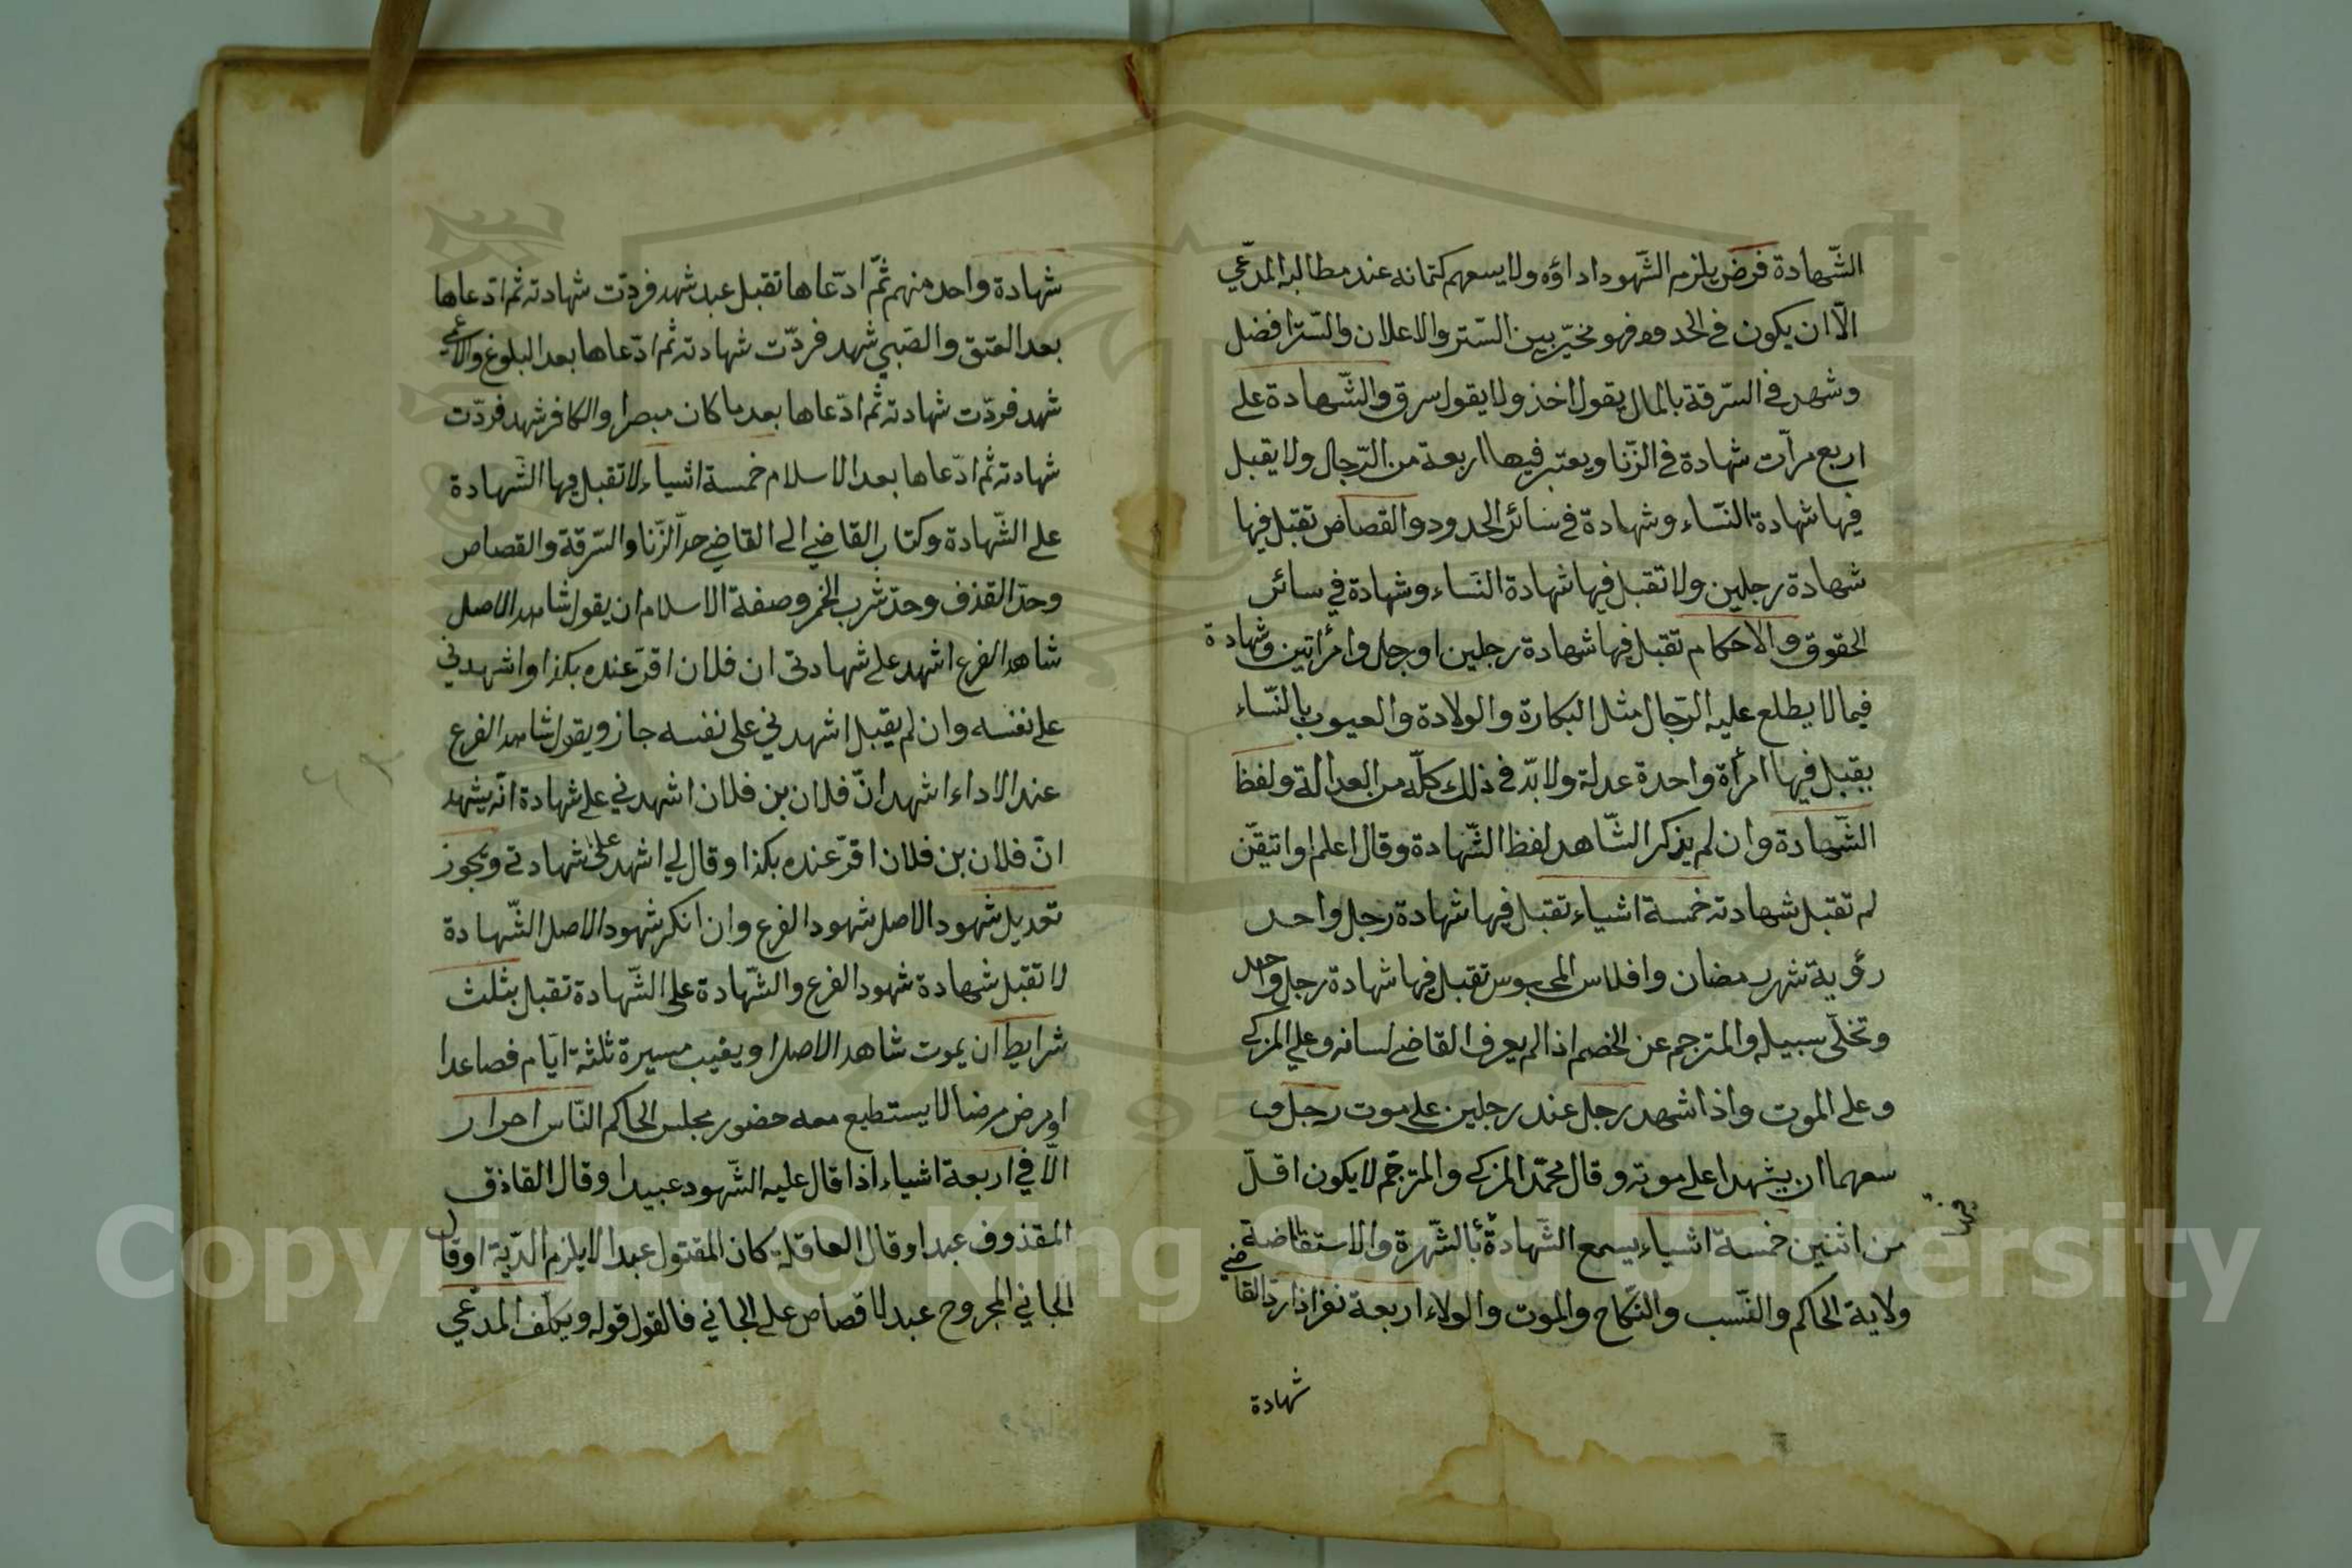 الشّهادة فرض يلزم الشّهود اداؤه ولا يسعهم كتمانه عند مطالبه المدّعي
الّا ان يكون في الحدود فهو مخيّر بين السّتر والاعلان والسّتر افضل
وشهد في السّرقة بالمال يقول اخذ ولا يقول سرق والشّهادة على
اربع مرآت شهادة في الزّنا ويعتبر فيها اربعة من الرّجال ولا يقبل
فيها شهادة النّساء وشهادة في سائر الحدود والقصاص تقبل فيها
شهادة رجلين ولا تقبل فيها شهادة النّساء وشهادة في سائر
الحقوق والاحكام تقبل فيها شهادة رجلين او رجل وامرأتين وشهادة
فيما لا يطلع عليه الرّجال مثل البكارة والولادة والعيوب بالنّساء
يقبل فيها امرأة واحدة عدلة ولا بدّ في ذلك كلّه من العدالة ولفظ
الشّهادة وان لم يذكر الشّاهد لفظ الشّهادة وقال اعلم او اتيقّن
لم تقبل شهادته خمسة اشياء تقبل فيها شهادة رجل واحد
رؤية شهر رمضان وافلاس المحبوس تقبل فيها شهادة رجل واحد
وتخلّى سبيله والمترجم عن الخصم اذا لم يعرف القاضي لسانه وعلي المزكي
وعلى الموت واذا شهد رجل عند رجلين على موت رجل و
سعهما ان يشهدا على موته وقال محمّد المزكي والمترجّم لا يكون اقلّ
من اثنين خمسة اشياء يسمع الشّهادة بالشّهرة والاستقاضة
ولاية الحاكم والنّسب والنّكاح والموت والولاء اربعة نفر اذا ردّ القاضي
شهادة
شهادة واحد منهم ثمّ ادّعاها تقبل عبد شهد فردّت شهادته ثم ادّعاها
بعد العتق والصّبي شهد فردّت شهادته ثم ادّعاها بعد البلوغ والاعمي
شهد فردّت شهادته ثم ادّعاها بعد ما كان مبصرا والكافر شهد فردّت
شهادته ثم ادّعاها بعد الاسلام خمسة اشياء لا تقبل فيها الشّهادة
على الشّهادة وكتاب القاضي الى القاضي حدّ الزّنا والسّرقة والقصاص
وحدّ القذف وحدّ شرب الخمر وصفة الاسلام ان يقول شاهد الاصل
شاهد الفرع اشهد على شهادتي ان فلان اقرّ عنده بكذا واشهدني
على نفسه وان لم يقبل اشهدني على نفسه جاز ويقول شاهد الفرع
عند الاداء اشهد انّ فلان بن فلان اشهدني على شهادة انّه يشهد
انّ فلان بن فلان اقرّ عنده بكذا وقال لي اشهد على شهادتي وتجوز
تعديل شهود الاصل شهود الفرع وان انكر شهود الاصل الشّهادة
لا تقبل شهادة شهود الفرع والشّهادة على الشّهادة تقبل بثلث
شرايط ان يموت شاهد الاصل او يغيب مسيرة ثلثة ايّام فصاعدا
او مرض مرضا لا يستطيع معه حضور مجلس الحاكم النّاس احرار
الّا في اربعة اشياء اذا قال عليه الشّهود عبيدا وقال القاذف
المقذوف عبدا وقال العاقلة كان المقتول عبدا لا يلزم الدّية او قال
الجاني المجروح عبد لا قصاص على الجاني فالقول قوله ويكلف المدّعي
Copyright © King Saud University
1957